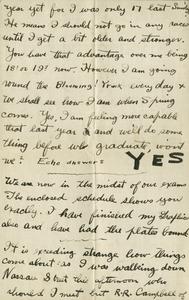 year yet for I was only 17 last
He means I should not go in any races
until I get a bit older and stronger.
You have that advantage over me being
18 or 19? now. However I am going
round the Blooming Track every day &
we shall see how I am when Spring
comes. Yes, I am feeling more capable
that last year and we'll do some
thing before we graduate, won't
we? Echo answers YES
We are now in the midst of our exams
The enclosed schedule shows you
exactly. I have finished my
also and have had the plates bound
It is exceeding strange how things
come about: as I was walking down
Nassau St this afternoon who
should I meet but R.R. Campbell of